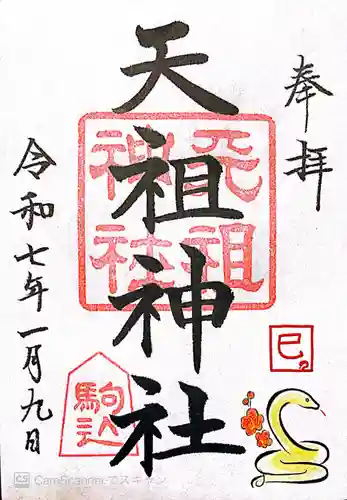 奉拝
天祖神社
天祖神社
巳
駒込
令和七年一月九日
CS CamScannerでスキャン